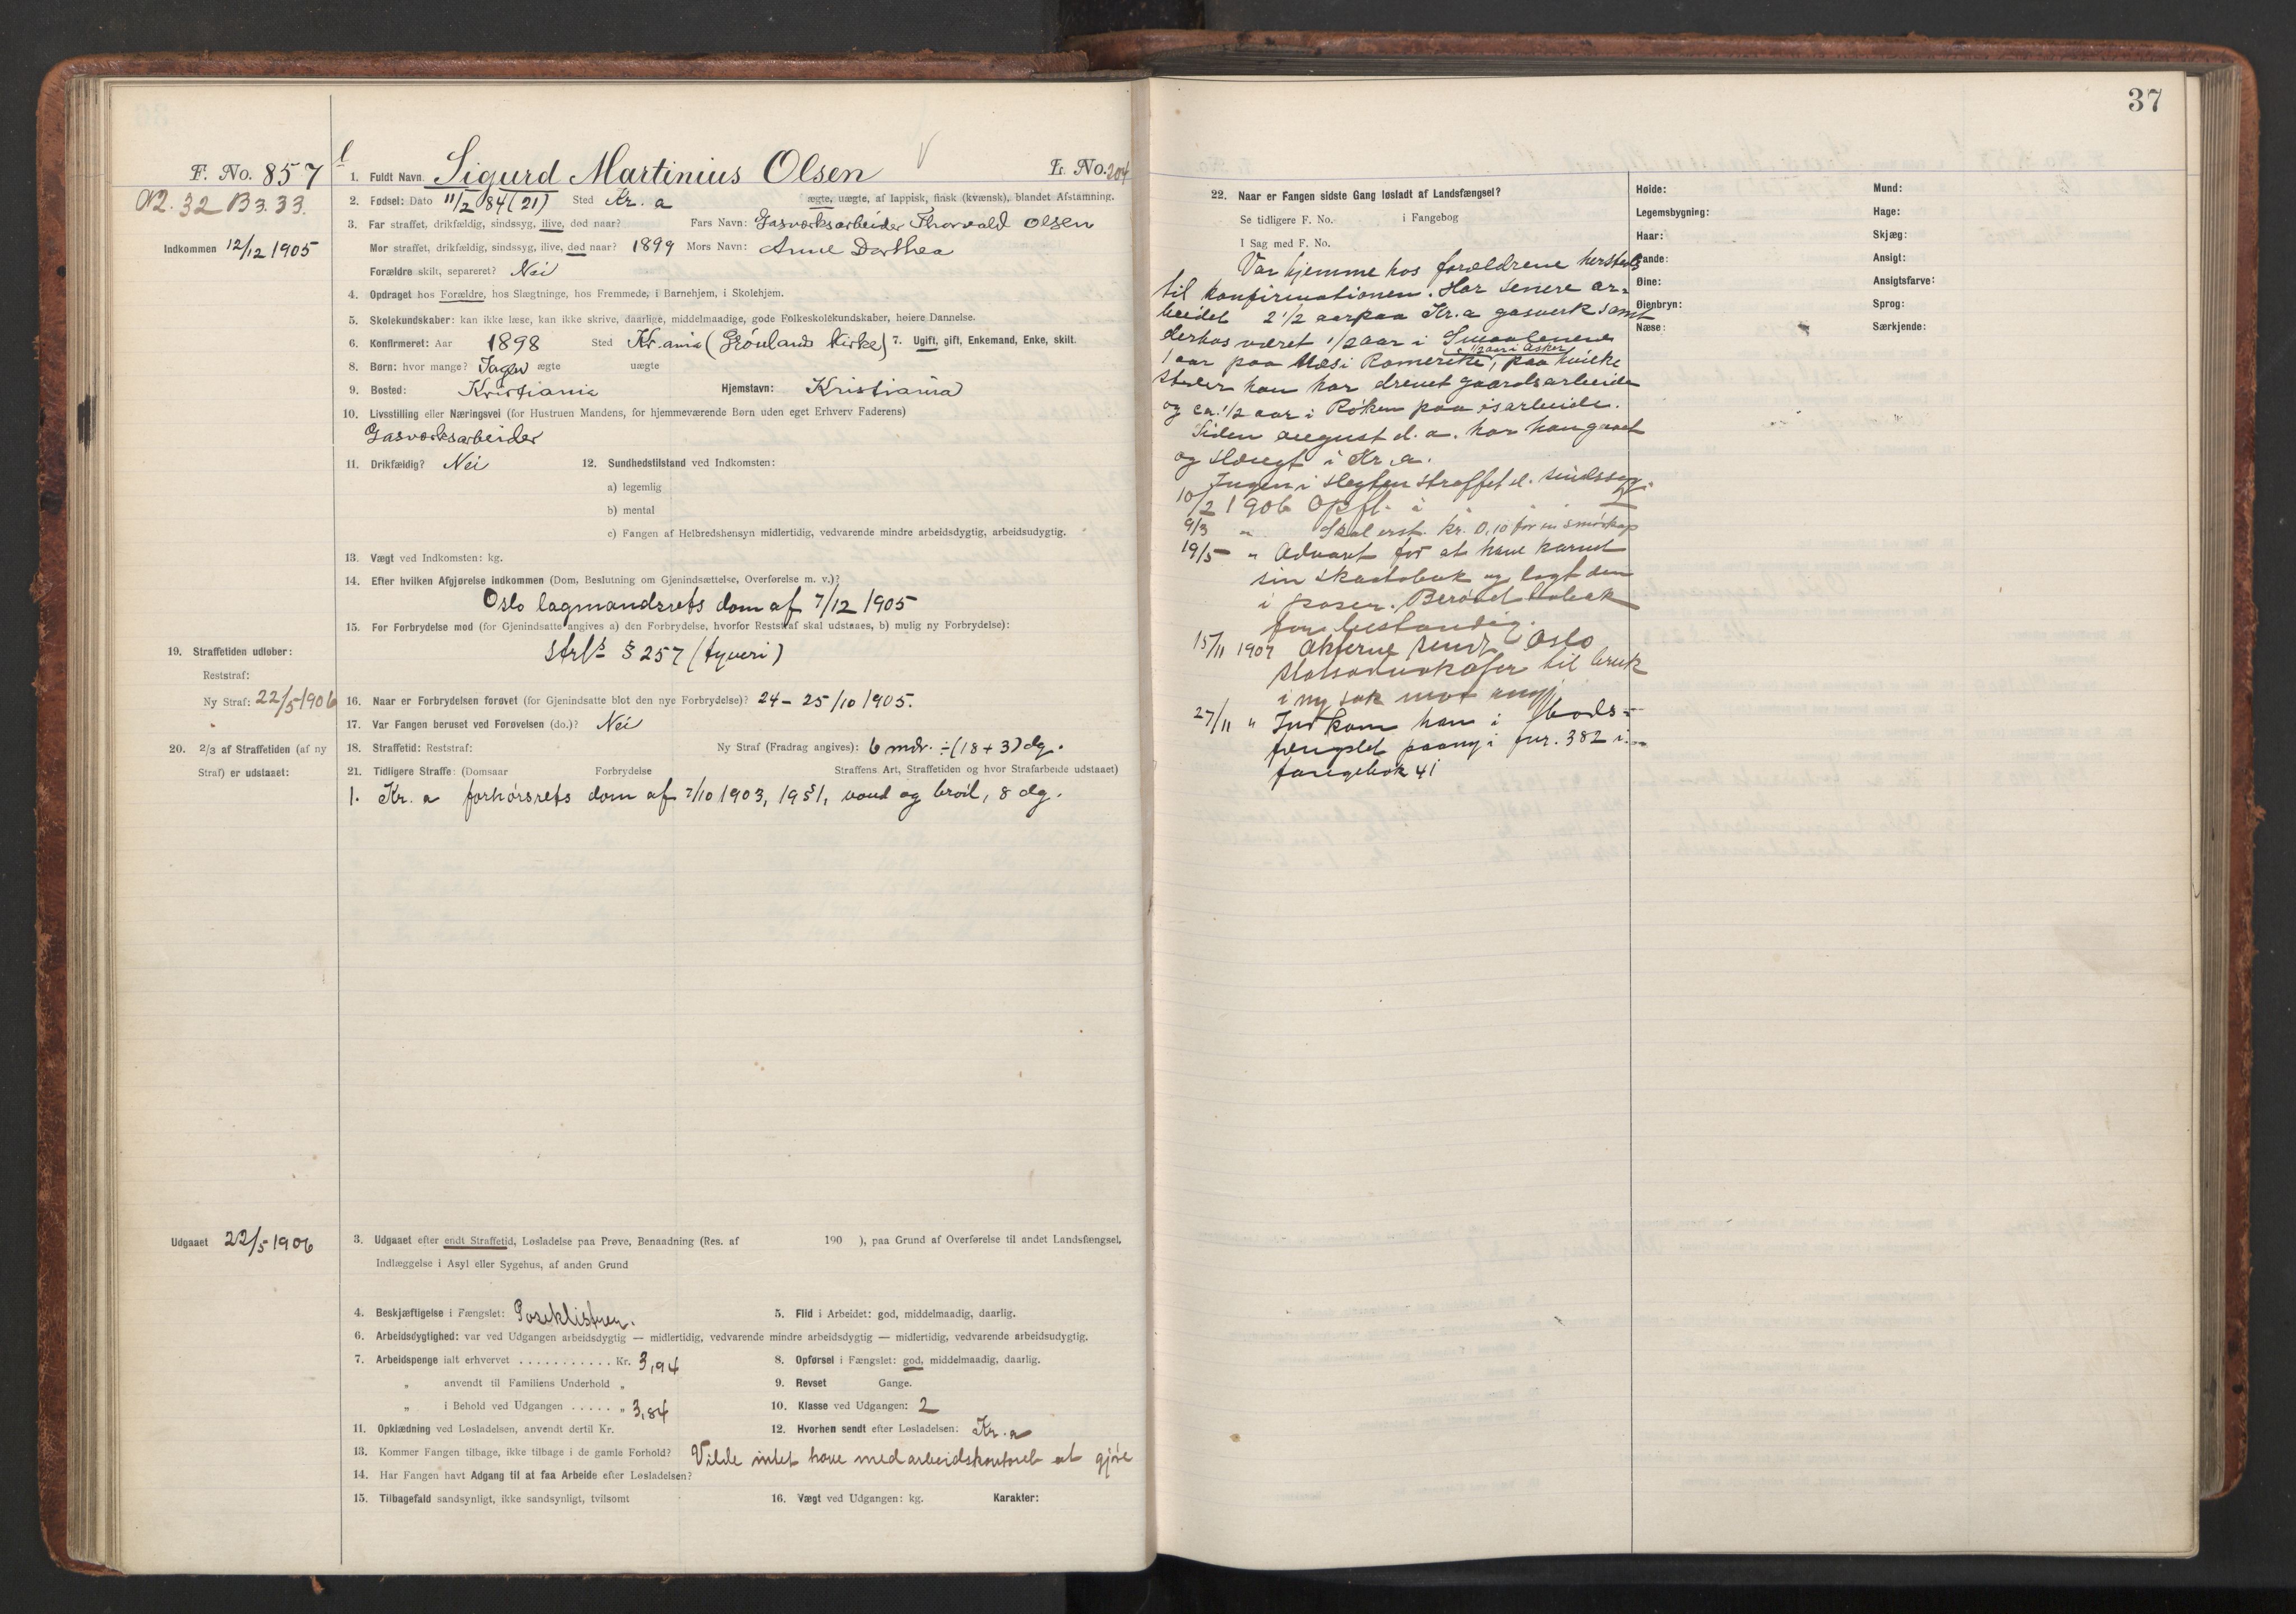 37
F. No. 857
1. Fuldt Navn Sigurd Martinius Olsen
L. No. 204
N2. 32 B3. 33.
2. Fødsel: Dato 11/2 84 (21) Sted Kr.a ægte, uægte, af lappisk, finsk (kvænsk), blandet Afstamning.
Indkommen 12/12 1905
3. Far straffet, drikfældig, sindssyg, ilive, død naar? Fars Navn: Gasværksarbeider Thorvald Olsen
Mor straffet, drikfældig, sindssyg, ilive, død naar? 1899 Mors Navn: Anne Dorthea
Forældre skilt, separeret? Nei
4. Opdraget hos Forældre, hos Slægtninge, hos Fremmede, i Barnehjem, i Skolehjem.
5. Skolekundskaber: kan ikke læse, kan ikke skrive, daarlige, middelmaadige, gode Folkeskolekundskaber, høiere Dannelse.
6. Konfirmeret: Aar 1898 Sted Kr.ania (Grønlands Kirke) 7. Ugift, gift, Enkemand, Enke, skilt.
8. Børn: hvor mange? Ingen ægte uægte
9. Bosted: Kristiania Hjemstavn: Kristiania
10. Livsstilling eller Næringsvei (for Hustruen Mandens, for hjemmeværende Børn uden eget Erhverv Faderens)
Gasværksarbeider
11. Drikfældig? Nei 12. Sundhedstilstand ved Indkomsten:
a) legemlig
b) mental
c) Fangen af Helbredshensyn midlertidig, vedvarende mindre arbeidsdygtig, arbeidsudygtig.
13. Vægt ved Indkomsten: kg.
14. Efter hvilken Afgjørelse indkommen (Dom, Beslutning om Gjenindsættelse, Overførelse m. v.)?
Oslo lagmandsrets dom af 7/12 1905
15. For Forbrydelse mod (for Gjenindsatte angives a) den Forbrydelse, hvorfor Reststraf skal udstaaes, b) mulig ny Forbrydelse):
Strl's § 257 (tyveri)
19. Straffetiden udløber:
Reststraf:
Ny Straf: 22/5 1906
16. Naar er Forbrydelsen forøvet (for Gjenindsatte blot den nye Forbrydelse)? 24 – 25/10 1905.
17. Var Fangen beruset ved Forøvelsen (do.)? Nei
20. 2/3 af Straffetiden (af ny Straf) er udstaaet:
18. Straffetid: Reststraf: Ny Straf (Fradrag angives): 6 mdr. ÷ (18 + 3) dg.
21. Tidligere Straffe: (Domsaar Forbrydelse Straffens Art, Straffetiden og hvor Strafarbeide udstaaet)
1. Kr.a forhørsrets dom af 7/10 1903, 19§1, vand og brød, 8 dg.
Udgaaet 22/5 1906
3. Udgaaet efter endt Straffetid, Løsladelse paa Prøve, Benaadning (Res. af 190 ), paa Grund af Overførelse til andet Landsfængsel,
Indlæggelse i Asyl eller Sygehus, af anden Grund
4. Beskjæftigelse i Fængslet: Poseklistren. 5. Flid i Arbeidet: god, middelmaadig, daarlig.
6. Arbeidsdygtighed: var ved Udgangen arbeidsdygtig — midlertidig, vedvarende mindre arbeidsdygtig — midlertidig, vedvarende arbeidsudygtig.
7. Arbeidspenge ialt erhvervet . . . . . . . . . . . Kr. 3,94 8. Opførsel i Fængslet: god, middelmaadig, daarlig.
„ anvendt til Familiens Underhold „ 9. Revset Gange.
„ i Behold ved Udgangen . . . . . „ 3,84 10. Klasse ved Udgangen: 2
11. Opklædning ved Løsladelsen, anvendt dertil Kr. 12. Hvorhen sendt efter Løsladelsen: Kr.a
13. Kommer Fangen tilbage, ikke tilbage i de gamle Forhold? Vilde intet have med arbeidskontoret at gjøre
14. Har Fangen havt Adgang til at faa Arbeide efter Løsladelsen?
15. Tilbagefald sandsynligt, ikke sandsynligt, tvilsomt 16. Vægt ved Udgangen: kg. Karakter:
22. Naar er Fangen sidste Gang løsladt af Landsfængsel?
Se tidligere F. No. i Fangebog
I Sag med F. No.
Var hjemme hos forældrene hersteds
til konfirmationen. Har senere ar-
beidet 2 1/2 aar paa Kr.a gasverk samt
derhos været 1/2 aar i Smaalenene
1/2 aar i Asker
1 aar paa Næs i Romerike, paa hvilke
steder han har drevet gaardsarbeide
og ca. 1/2 aar i Røken paa isarbeide.
Siden august d. a. har han gaaet
og slænget i Kr.a.
Ingen i slegten straffet el. sindssyg.
10/2 1906 Opfl. i
9/3 „ Skal erst. kr. 0,10 for en smørkop
19/5 „ Advaret for at have
sin skaatobak og lagt den
i posen. Berøvet tobak
for bestandig.
15/11 1907 Akterne sendt Oslo
statsadvokater til bruk
i ny sak mot angj.
27/11 „ Indkom han i Bods-
fengslet paany i fnr. 382 i
fangebok 41
Høide:
Legemsbygning:
Haar:
Pande:
Øine:
Øienbryn:
Næse:
Mund:
Hage:
Skjæg:
Ansigt:
Ansigtsfarve:
Sprog:
Særkjende: